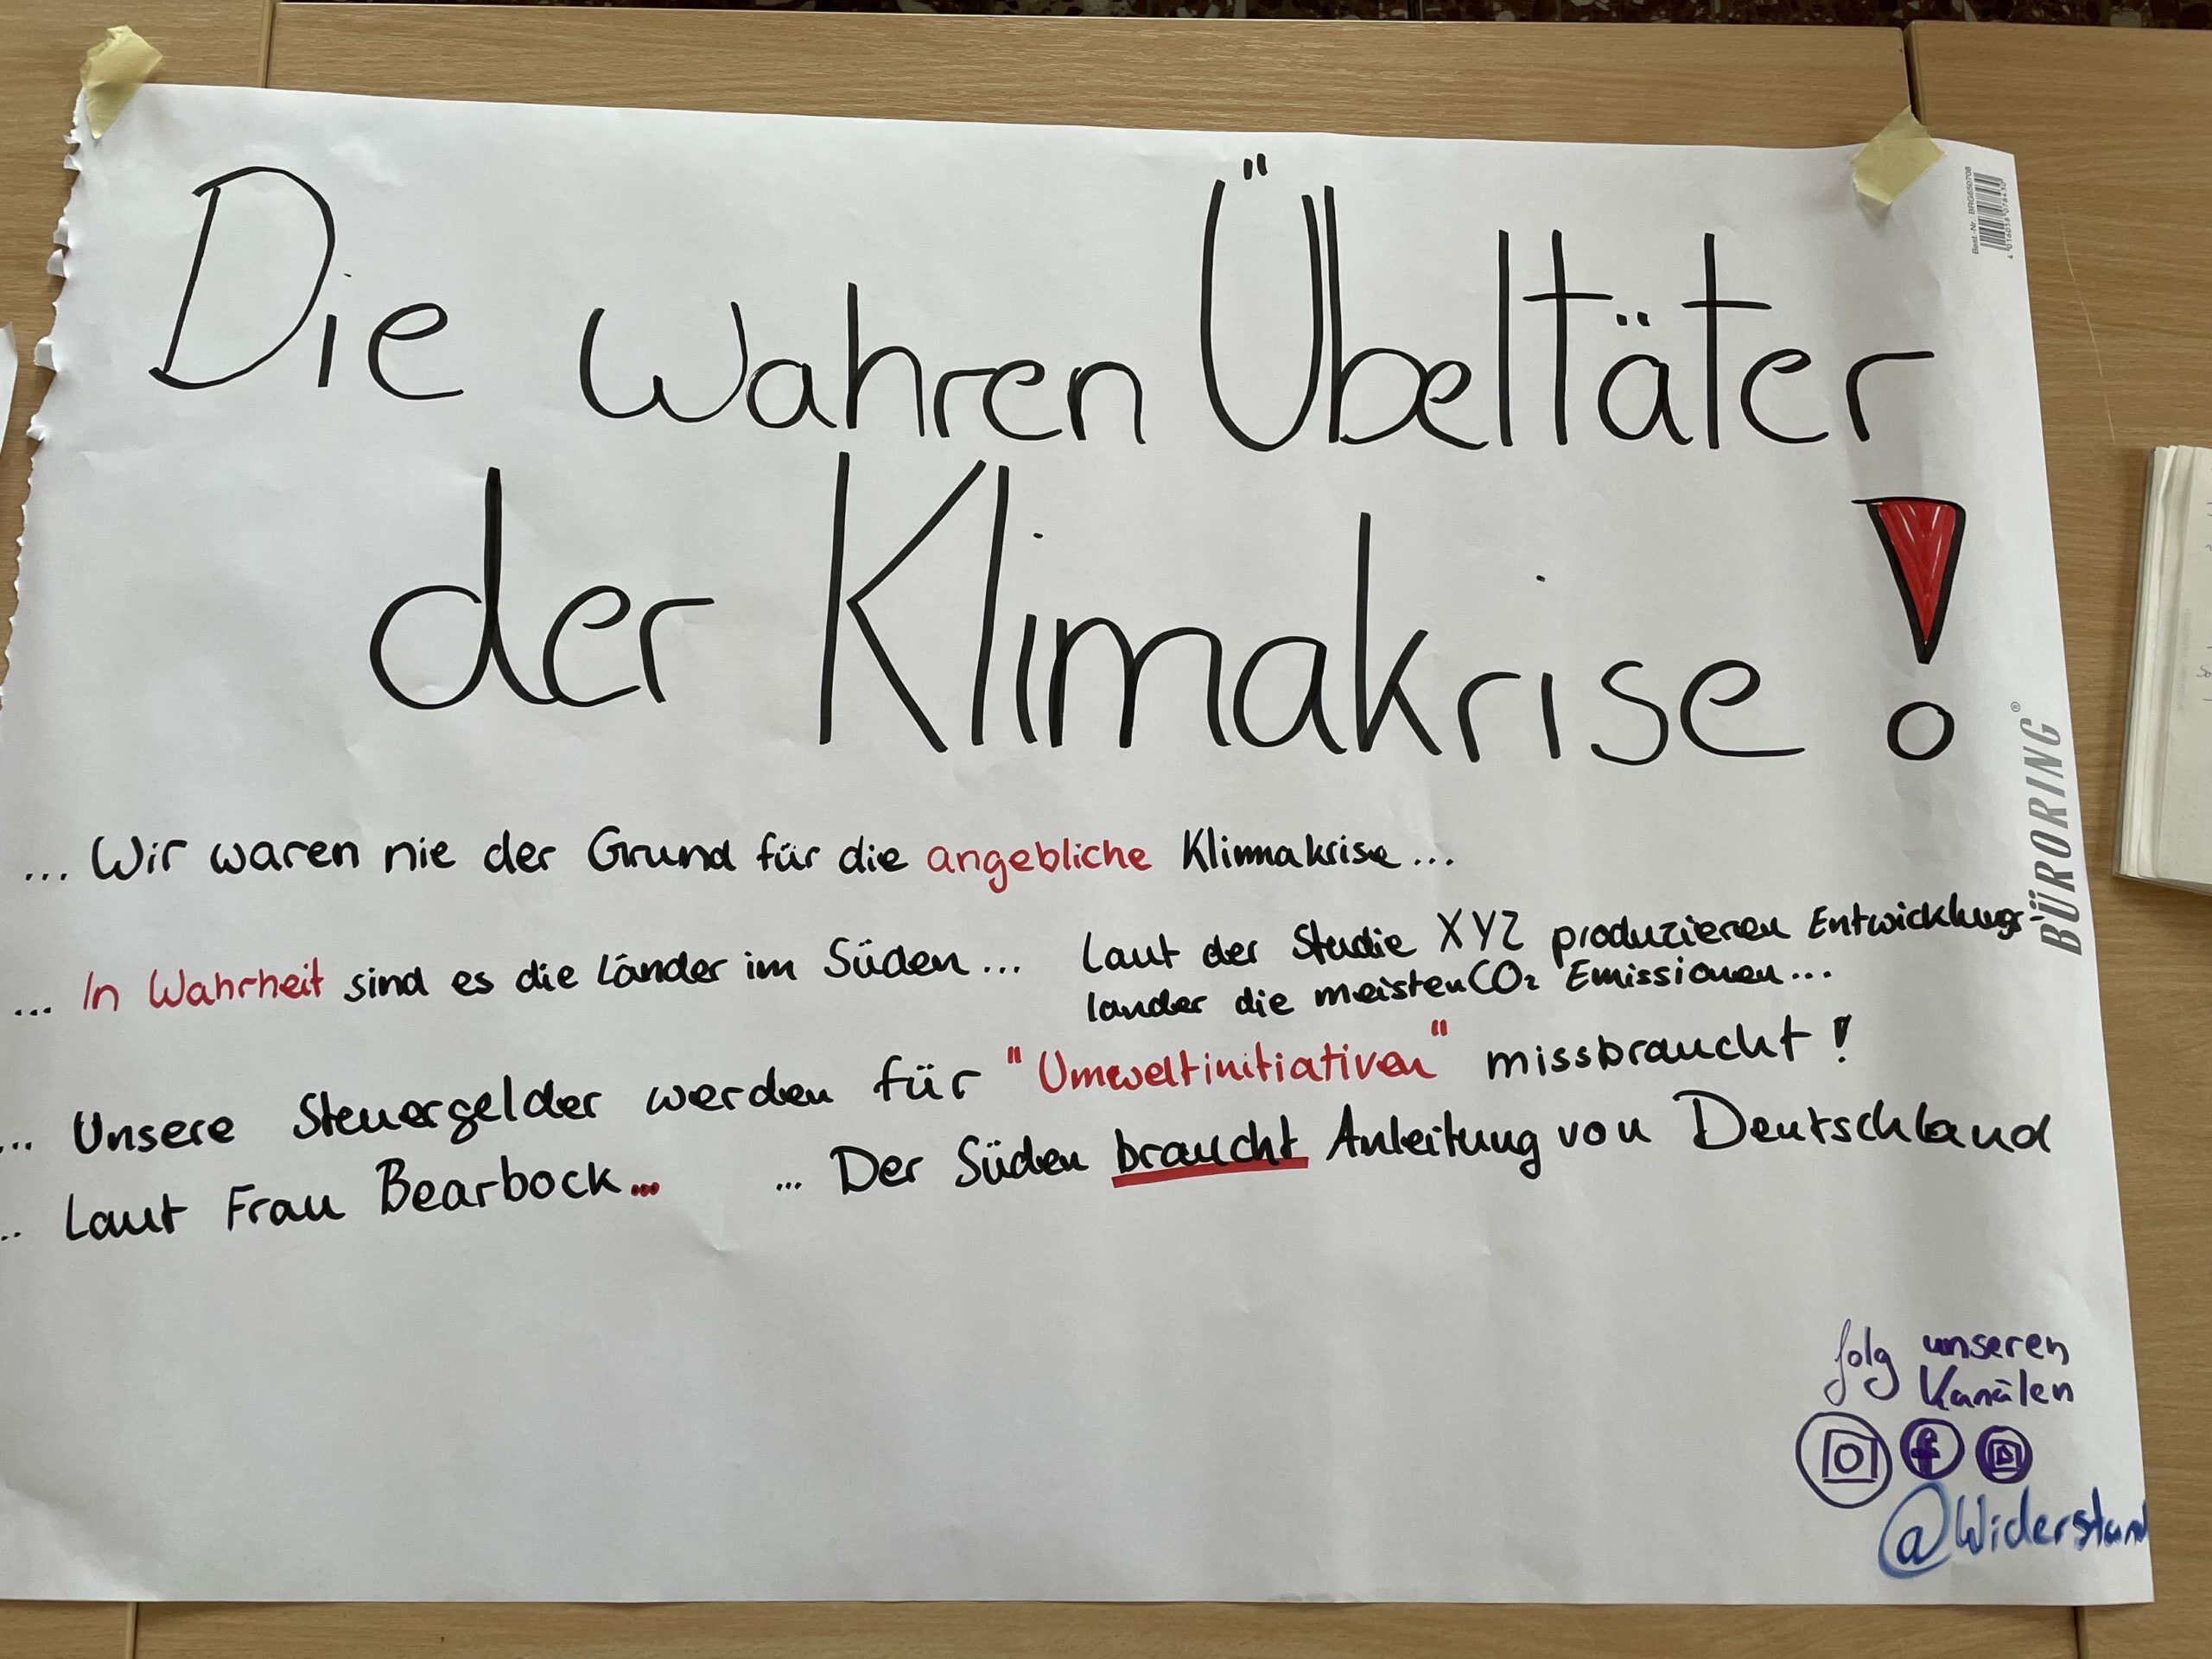 Die wahren Übeltäter
der Klimakrise!
... Wir waren nie der Grund für die angebliche Klimakrise...
... In Wahrheit sind es die Länder im Süden...
Laut der Studie XYZ produzieren Entwicklungs-
länder die meisten CO₂ Emissionen...
... Unsere Steuergelder werden für "Umweltinitiativen" missbraucht!
.. Laut Frau Bearbock...
... Der Süden braucht Anleitung von Deutschland
folg unseren
Kanälen
@Widerstand
BÜRORING®
Best.-Nr.: BRG650708